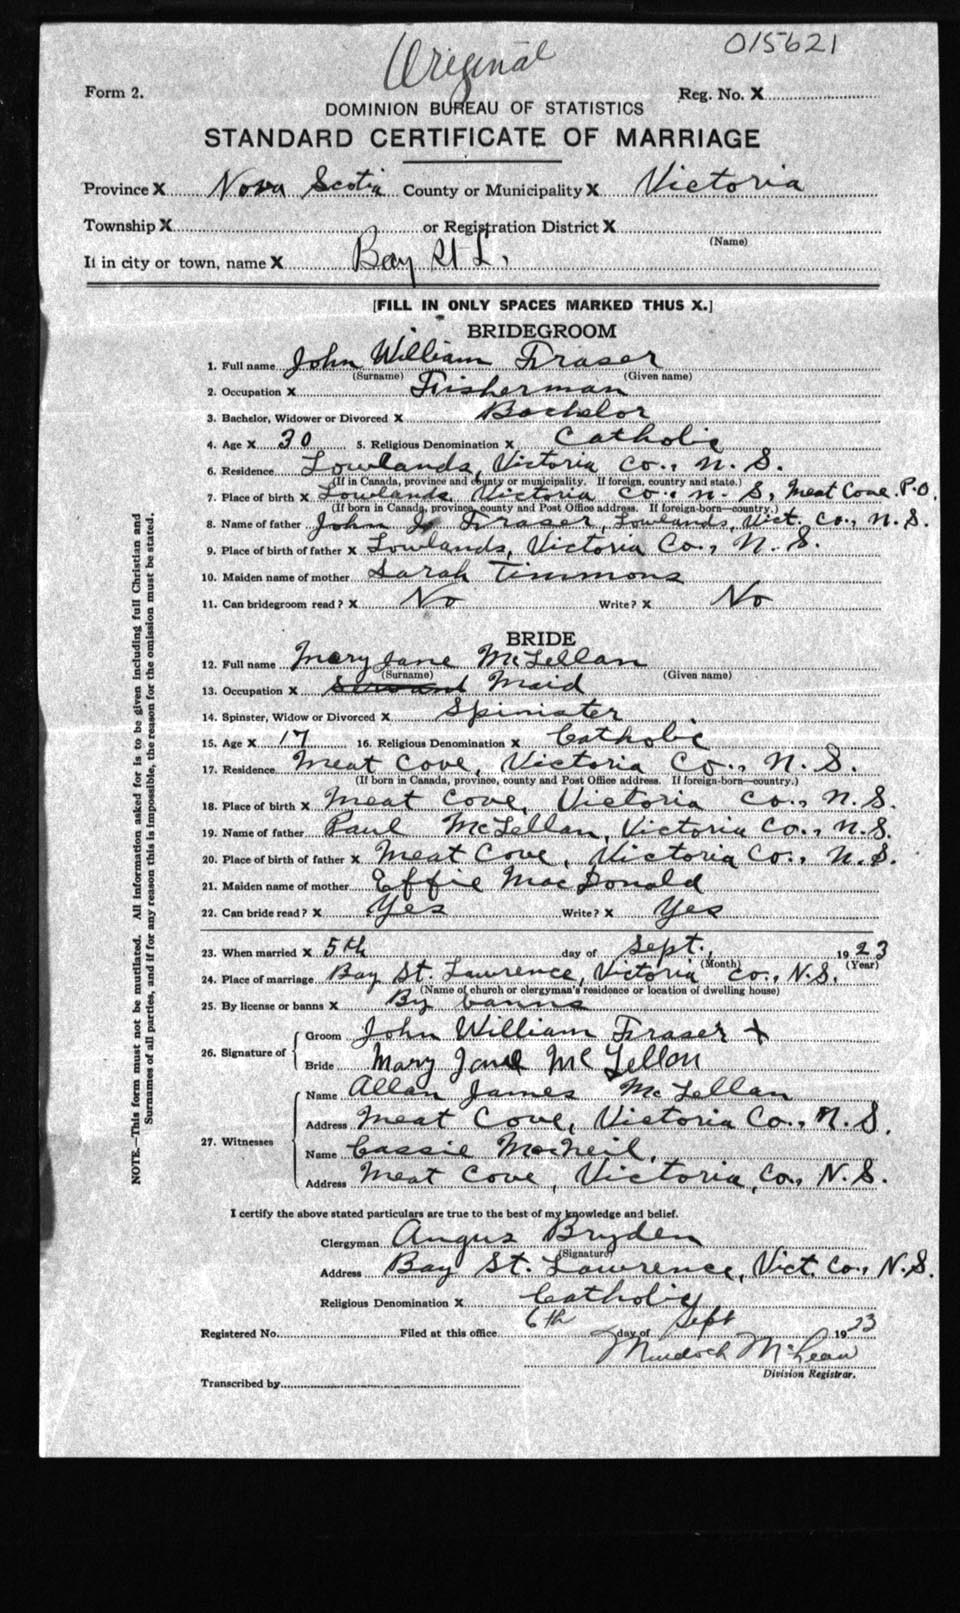 Original
015621
Form 2.
Reg. No. X
DOMINION BUREAU OF STATISTICS
STANDARD CERTIFICATE OF MARRIAGE
Province X Nova Scotia County or Municipality X Victoria
Township X or Registration District X
(Name)
If in city or town, name X Bay St L.
[FILL IN ONLY SPACES MARKED THUS X.]
BRIDEGROOM
1. Full name John William Fraser
(Surname) (Given name)
2. Occupation X Fisherman
3. Bachelor, Widower or Divorced X Bachelor
4. Age X 30 5. Religious Denomination X Catholic
6. Residence Lowlands, Victoria Co., N.S.
(If in Canada, province and county or municipality. If foreign, country and state.)
7. Place of birth X Lowlands Victoria Co. N.S, Meat Cove P.O.
(If born in Canada, province, county and Post Office address. If foreign-born—country.)
8. Name of father John J Fraser, Lowlands, Vict. Co., N.S.
9. Place of birth of father X Lowlands, Victoria Co., N.S.
10. Maiden name of mother Sarah Timmons
11. Can bridegroom read? X No Write? X No
BRIDE
12. Full name Mary Jane McLellan
(Surname) (Given name)
13. Occupation X Servant Maid
14. Spinster, Widow or Divorced X Spinister
15. Age X 17 16. Religious Denomination X Catholic
17. Residence Meat Cove, Victoria Co., N.S.
(If born in Canada, province, county and Post Office address. If foreign-born—country.)
18. Place of birth X Meat Cove, Victoria Co., N.S.
19. Name of father Paul McLellan, Victoria Co., N.S.
20. Place of birth of father X Meat Cove, Victoria Co., N.S.
21. Maiden name of mother Effie MacDonald
22. Can bride read? X Yes Write? X Yes
23. When married X 5th day of Sept., 1923
(Month) (Year)
24. Place of marriage Bay St. Lawrence, Victoria Co., N.S.
(Name of church or clergyman's residence or location of dwelling house)
25. By license or banns X By banns
26. Signature of
Groom John William Fraser X
Bride Mary Jane McLellan
27. Witnesses
Name Allan James McLellan
Address Meat Cove, Victoria Co., N.S.
Name Cassie MacNeil,
Address Meat Cove, Victoria, Co., N.S.
I certify the above stated particulars are true to the best of my knowledge and belief.
Clergyman Angus Bryden
(Signature)
Address Bay St. Lawrence, Vict. Co., N.S.
Religious Denomination X Catholic
Registered No. Filed at this office 6th day of Sept 1923
Murdoch McLean
Division Registrar.
Transcribed by
NOTE.—This form must not be mutilated. All information asked for is to be given including full Christian and
Surnames of all parties, and if for any reason this is impossible, the reason for the omission must be stated.